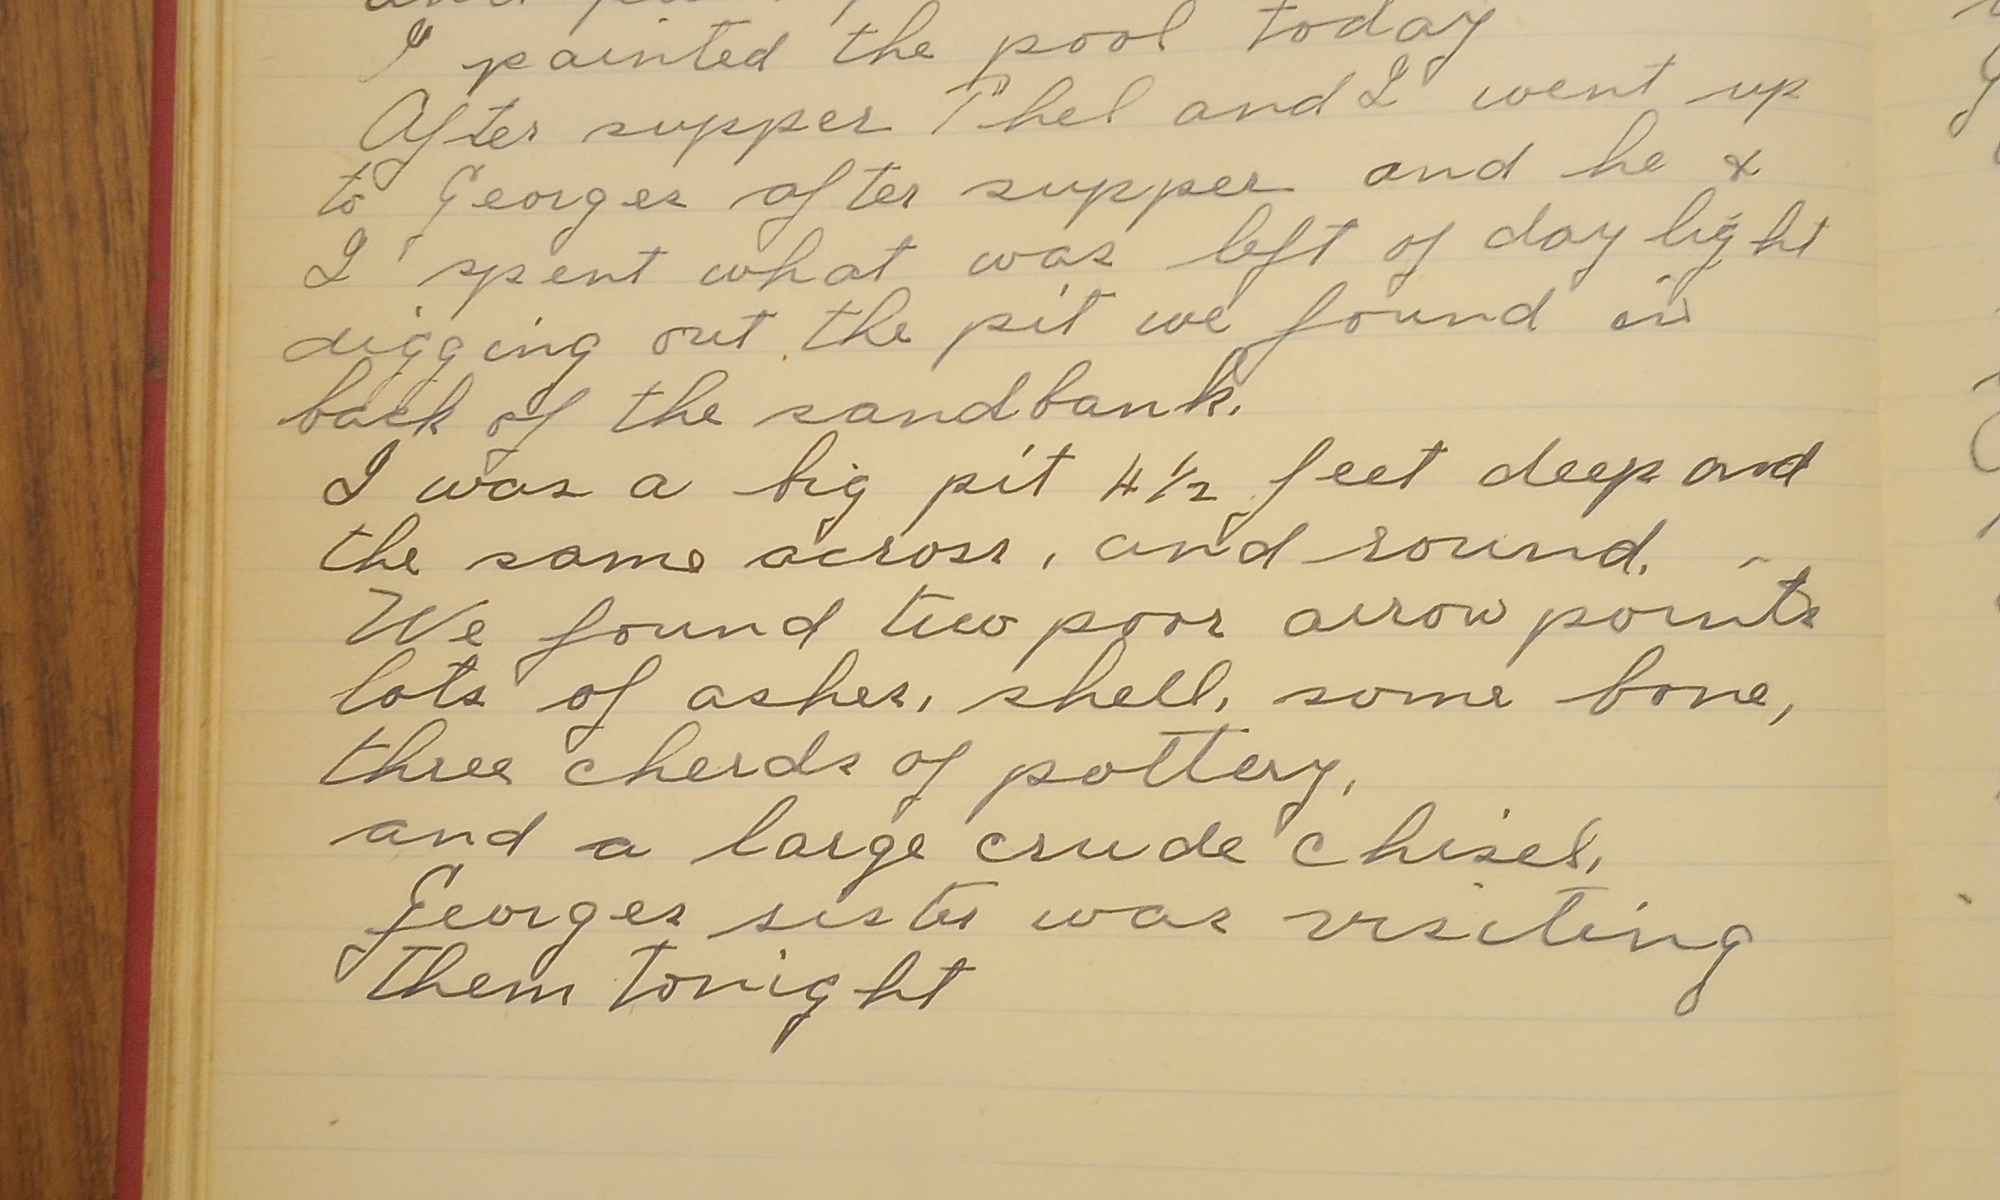 I painted the pool today
After supper Phel and I went up
to Georges after supper and he &
I spent what was left of day light
digging out the pit we found in
back of the sandbank.
I was a big pit 4 1/2 feet deep and
the same across, and round.
We found two poor arrow points
lots of ashes, shell, some bone,
three cherds of pottery,
and a large crude chisel,
Georges sister was visiting
them tonight